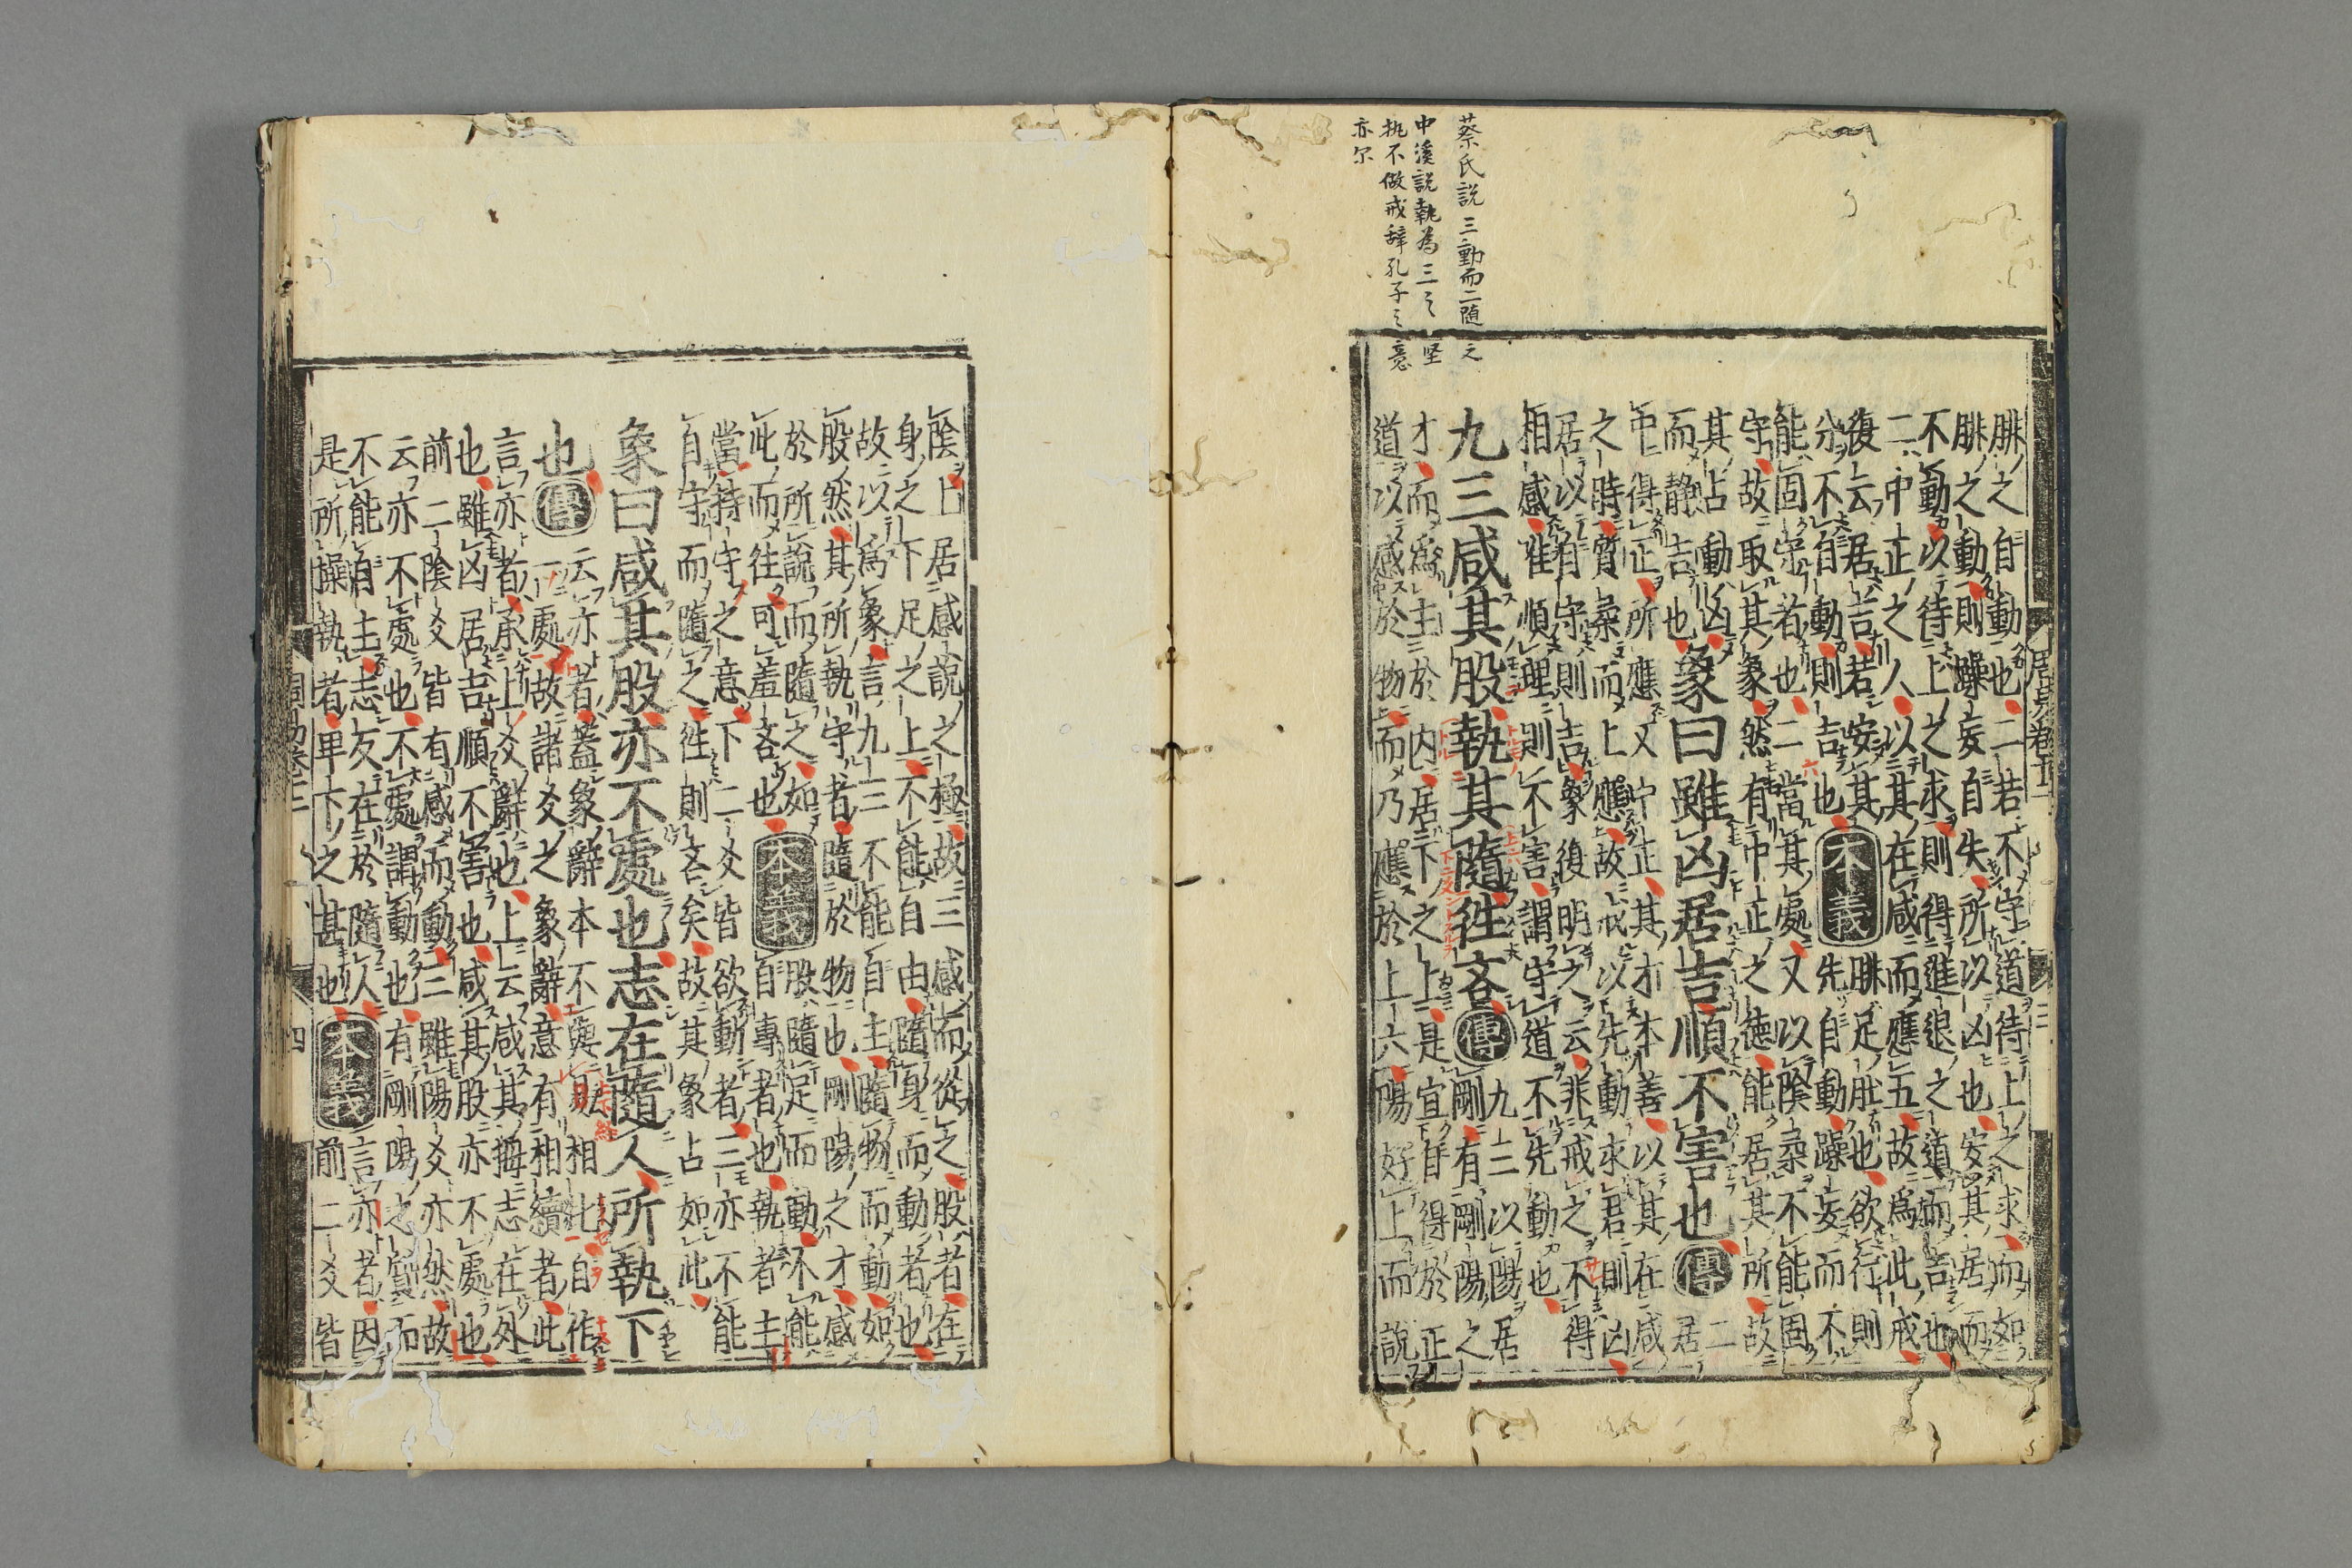 蔡氏説三動而二隨之
中溪説執為三之坚
执不做戒辞孔子之意
亦尔
腓之自動也二若不守道待上之求而如
腓之動則躁妄自失所以凶也安其居而
不動以待上之求則得進退之道而吉也
二中正之人以其在咸而應五故爲此戒
復云居吉若安其
分不自動則吉也
本義
腓足肚也欲行則
先自動躁妄而不
能固守者也二當其處又以陰柔不能固
守故取其象然有中正之德能居其所故
其占動凶
而静吉也
象曰雖凶居吉順不害也
傳
二
居
中得正所應又中正其才本善以其在咸
之時質柔而上應故戒以先動求君則凶
居以自守則吉象復明之云非戒之不得
相感唯順理則不害謂守道不先動也
九三咸其股執其隨往吝
傳
九三以陽居
剛有剛陽之
才而爲主於内居下之上是宜自得於正
道以感於物而乃應於上六陽好上而説
周易卷十二
陰上居感説之極故三感而從之股者在
身之下足之上不能自由隨身而動者也
故以爲象言九三不能自主隨物而動如
股然其所執守者隨於物也剛陽之才感
於所説而隨之如
此而往可羞吝也
本義
股隨足而動不能
自專者也執者主
當持守之意下二爻皆欲動者三亦不能
自守而隨之往則吝矣故其象占如此
象曰咸其股亦不處也志在隨人所執下
也
傳
云亦者蓋象辭本不與易相比自作
一處故諸爻之象辭意有相續者此
言亦者承上爻辭也上云咸其拇志在外
也雖凶居吉順不害也咸其股亦不處也
前二陰爻皆有感而動三雖陽爻亦然故
云亦不處也不處謂動也有剛陽之質而
不能自主志反在於隨人
是所操執者卑下之甚也
本義
言亦者因
前二爻皆
周易卷十二
四